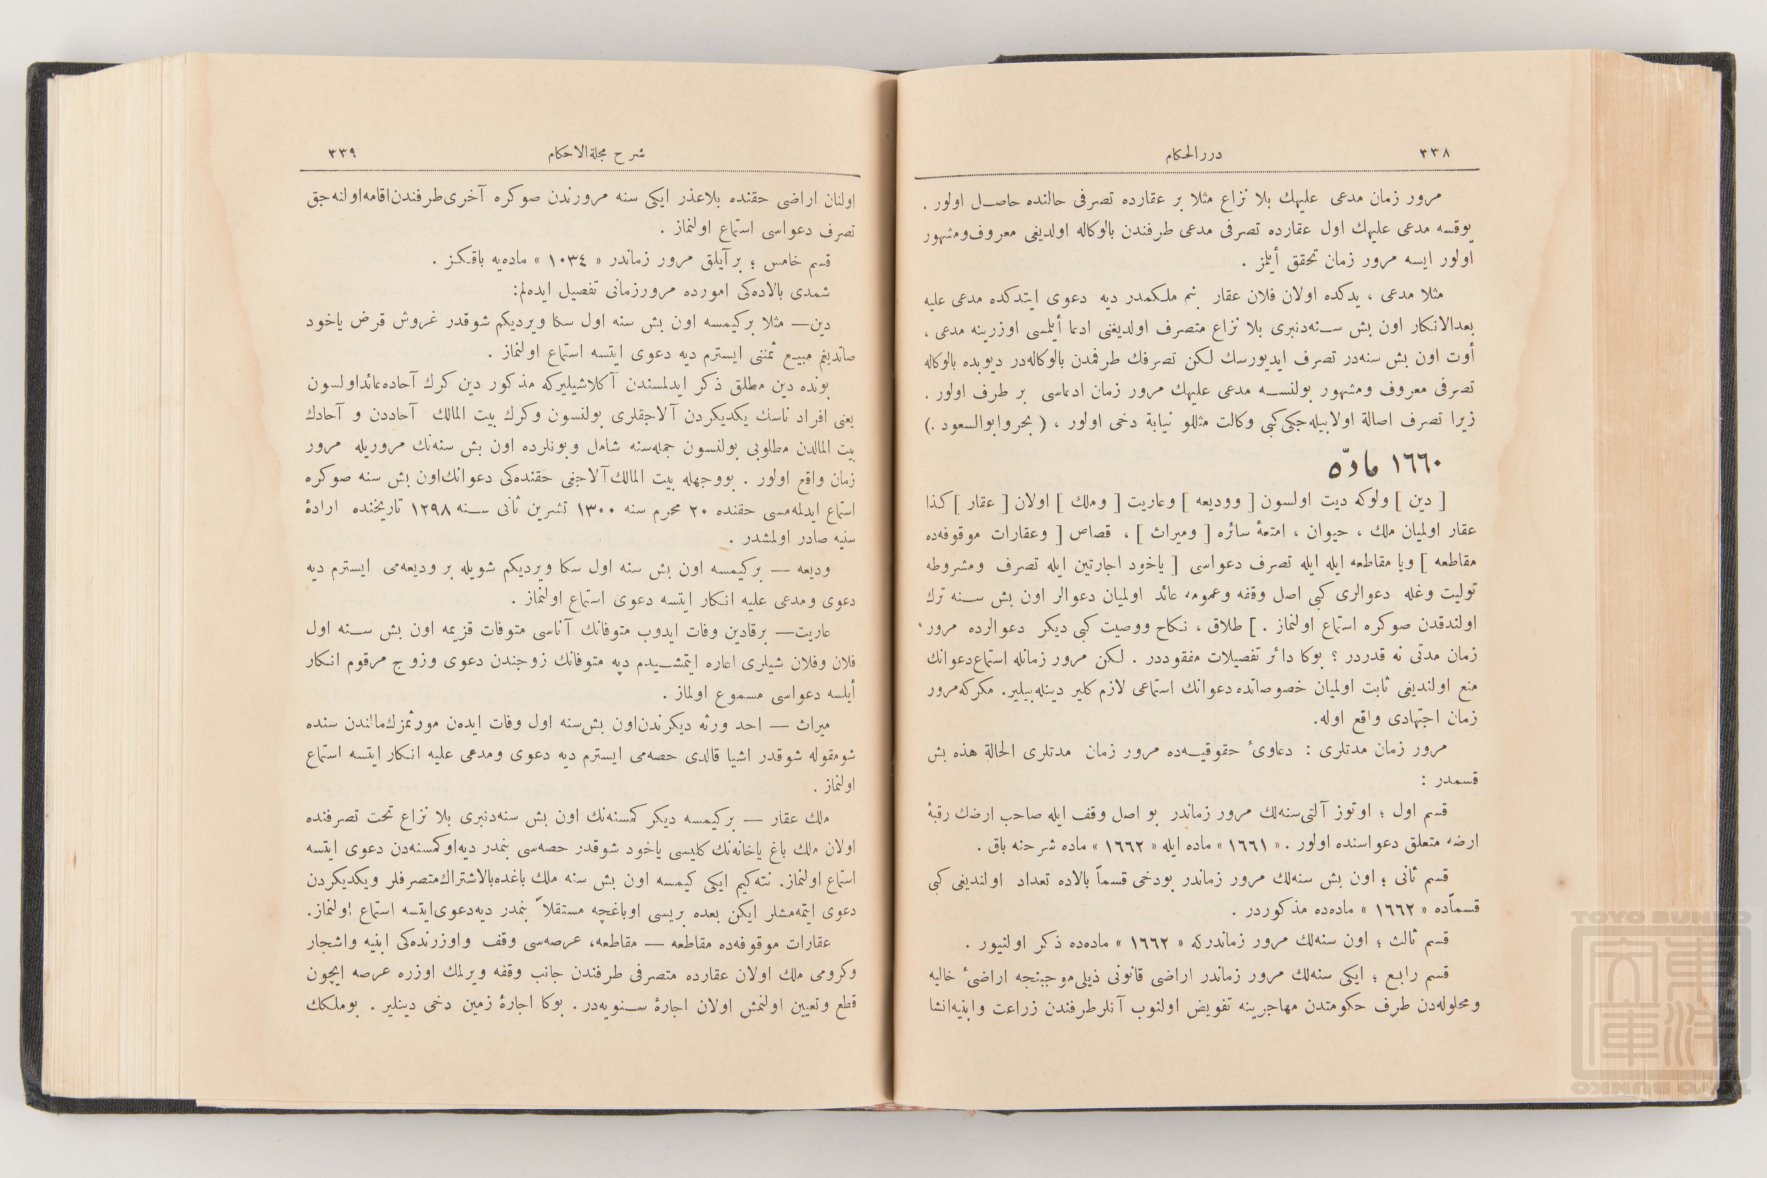 ٣٣٨ درر الحكام
مرور زمان مدعى عليهك بلا نزاع مثلا بر عقارده تصرفى حالنده حاصل اولور .
يوقسه مدعى عليهك اول عقارده تصرفى مدعى طرفندن بالوكاله اولديغى معروف ومشهور
اولور ايسه مرور زمان تحقق أيلمز .
مثلا مدعى ، يدكده اولان فلان عقار بنم ملكمدر ديه دعوى ايتدكده مدعى عليه
بعدالانكار اون بش سنه‌دنبرى بلا نزاع متصرف اولديغنى ادعا أيلمسى اوزرينه مدعى ،
أوت اون بش سنه‌در تصرف ايديورسك لكن تصرفك طرفمدن بالوكاله‌در ديوبده بالوكاله
تصرفى معروف ومشهور بولنسه مدعى عليهك مرور زمان ادعاسى بر طرف اولور .
زيرا تصرف اصالة اولابيله‌جكى كبى وكالت مثللو نيابة دخى اولور ، ( بحر وابوالسعود . )
١٦٦٠ مادّه
[ دين ] ولوكه ديت اولسون [ ووديعه ] وعاريت [ وملك ] اولان [ عقار ] كذا
عقار اولميان ملك ، حيوان ، امتعۀ سائره [ وميراث ] ، قصاص [ وعقارات موقوفه‌ده
مقاطعه ] ويا مقاطعه ايله ايله تصرف دعواسى [ ياخود اجارتين ايله تصرف ومشروطه
توليت وغله دعوالرى كبى اصل وقفه وعمومه عائد اولميان دعوالر اون بش سنه ترك
اولندقدن صوكره استماع اولنماز . ] طلاق ، نكاح ووصيت كبى ديكر دعوالرده مرور
زمان مدتى نه قدردر ؟ بوكا دائر تفصيلات مفقوددر . لكن مرور زمانله استماع دعوانك
منع اولنديغى ثابت اولميان خصوصاتده دعوانك استماعى لازم كلير دينله‌بيلير. مكركه مرور
زمان اجتهادى واقع اوله.
مرور زمان مدتلرى : دعاوىٔ حقوقيه‌ده مرور زمان مدتلرى الحالة هذه بش
قسمدر :
قسم اول ؛ اوتوز آلتى سنه‌لك مرور زماندر بو اصل وقف ايله صاحب ارضك رقبۀ
ارضه متعلق دعواسنده اولور . « ١٦٦١ » ماده ايله « ١٦٦٢ » ماده شرحنه باق .
قسم ثانى ؛ اون بش سنه‌لك مرور زماندر بودخى قسماً بالاده تعداد اولنديغى كبى
قسماًده « ١٦٦٢ » ماده‌ده مذكوردر .
قسم ثالث ؛ اون سنه‌لك مرور زماندركه « ١٦٦٢ » ماده‌ده ذكر اولنيور .
قسم رابع ؛ ايكى سنه‌لك مرور زماندر اراضى قانونى ذيلى موجبنجه اراضىٔ خاليه
ومحلوله‌دن طرف حكومتدن مهاجرينه تفويض اولنوب آنلر طرفندن زراعت وابنيه انشا
شرح مجلة الاحكام ٣٣٩
اولنان اراضى حقنده بلاعذر ايكى سنه مرورندن صوكره آخرى طرفندن اقامه اولنه‌جق
تصرف دعواسى استماع اولنماز .
قسم خامس ؛ بر آيلق مرور زماندر « ١٠٣٤ » ماده‌يه باقكز .
شمدى بالاده‌كى امورده مرورزمانى تفصيل ايده‌لم:
دين— مثلا بركيمسه اون بش سنه اول سكا ويرديكم شوقدر غروش قرض ياخود
صاتديغم مبيع ثمننى ايسترم ديه دعوى ايتسه استماع اولنماز .
بونده دين مطلق ذكر ايدلمسندن آكلاشيليركه مذكور دين كرك آحاده عائداولسون
يعنى افراد ناسك يكديكردن آلاجقلرى بولنسون وكرك بيت المالك آحاددن و آحادك
بيت المالدن مطلوبى بولنسون جمله‌سنه شامل وبونلرده اون بش سنه‌نك مروريله مرور
زمان واقع اولور . بووجهله بيت المالك آلاجغى حقنده‌كى دعوانك اون بش سنه صوكره
استماع ايدلمه‌مسى حقنده ٢٠ محرم سنه ١٣٠٠ تشرين ثانى سنه ١٢٩٨ تاريخنده ارادۀ
سنيه صادر اولمشدر .
وديعه — بركيمسه اون بش سنه اول سكا ويرديكم شويله بر وديعه‌مى ايسترم ديه
دعوى ومدعى عليه انكار ايتسه دعوى استماع اولنماز .
عاريت— برقادين وفات ايدوب متوفانك آناسى متوفات قزيمه اون بش سنه اول
فلان وفلان شيلرى اعاره ايتمشيدم ديه متوفانك زوجندن دعوى وزوج مرقوم انكار
أيلسه دعواسى مسموع اولماز .
ميراث — احد ورثه ديكرندن اون بش سنه اول وفات ايده‌ن مورثمزك مالندن سنده
شومقوله شوقدر اشيا قالدى حصه‌مى ايسترم ديه دعوى ومدعى عليه انكار ايتسه استماع
اولنماز .
ملك عقار — بركيمسه ديكر كمسنه‌نك اون بش سنه‌دنبرى بلا نزاع تحت تصرفنده
اولان ملك باغ ياخانه‌نك كليسى ياخود شوقدر حصه‌سى بنمدر ديه اوكمسنه‌دن دعوى ايتسه
استماع اولنماز. نته‌كيم ايكى كيمسه اون بش سنه ملك باغده بالاشتراك متصرفلر ويكديكردن
دعوى ايتمه‌مشلر ايكن بعده بريسى اوباغچه مستقلاً بنمدر ديه دعوى ايتسه استماع اولنماز.
عقارات موقوفه‌ده مقاطعه — مقاطعه، عرصه‌سى وقف واوزرنده‌كى ابنيه واشجار
وكرومى ملك اولان عقارده متصرفى طرفندن جانب وقفه ويرلمك اوزره عرصه ايچون
قطع وتعيين اولنمش اولان اجارۀ سنويه‌در. بوكا اجارۀ زمين دخى دينلير . بوملكك
TOYO BUNKO
東洋文庫
TOYO BUNKO